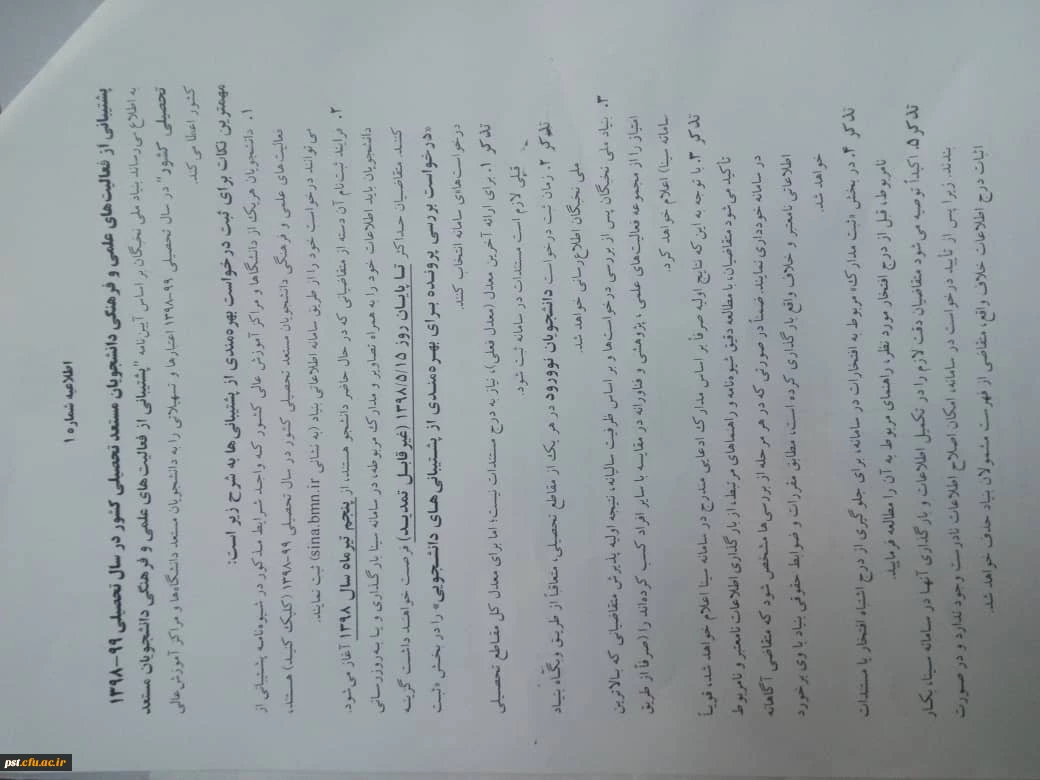 اطلاعیه شماره ۱
پشتیبانی از فعالیت‌های علمی و فرهنگی دانشجویان مستعد تحصیلی کشور در سال تحصیلی ۹۹-۱۳۹۸
به اطلاع می‌رساند بنیاد ملی نخبگان بر اساس آیین‌نامه "پشتیبانی از فعالیت‌های علمی و فرهنگی دانشجویان مستعد
تحصیلی کشور" در سال تحصیلی ۹۹-۱۳۹۸ اعتبارها و تسهیلاتی را به دانشجویان مستعد دانشگاه‌ها و مراکز آموزش عالی
کشور اعطا می کند.
مهمترین نکات برای ثبت درخواست بهره‌مندی از پشتیبانی‌ها به شرح زیر است:
۱. دانشجویان هریک از دانشگاه‌ها و مراکز آموزش عالی کشور که واجد شرایط مذکور در شیوه‌نامه پشتیبانی از
فعالیت‌های علمی و فرهنگی دانشجویان مستعد تحصیلی کشور در سال تحصیلی ۹۹-۱۳۹۸ (کلیک کنید) هستند،
می‌توانند درخواست خود را از طریق سامانه اطلاعاتی بنیاد (به نشانی sina.bmn.ir) ثبت نمایند.
۲. فرایند ثبت‌نام آن دسته از متقاضیانی که در حال حاضر دانشجو هستند، از پنجم تیرماه سال ۱۳۹۸ آغاز می‌شود.
دانشجویان باید اطلاعات خود را به همراه تصاویر و مدارک مربوطه در سامانه سینا بارگذاری و یا به‌روزرسانی
کنند. متقاضیان حداکثر تا پایان روز ۱۳۹۸/۵/۱۵ (غیرقابل تمدید) فرصت خواهند داشت گزینه
«درخواست بررسی پرونده برای بهره‌مندی از پشتیبانی‌های دانشجویی» را در بخش «ثبت
درخواست‌ها»ی سامانه انتخاب کنند.
تذکر ۱. برای ارائه آخرین معدل (معدل فعلی)، نیاز به درج مستندات نیست؛ اما برای معدل کل مقاطع تحصیلی
قبلی لازم است مستندات در سامانه ثبت شود.
تذکر ۲. زمان ثبت درخواست دانشجویان نوورود در هر یک از مقاطع تحصیلی، متعاقباً از طریق وبگاه بنیاد
ملی نخبگان اطلاع‌رسانی خواهد شد.
۳. بنیاد ملی نخبگان پس از بررسی درخواست‌ها و بر اساس ظرفیت سالیانه، نتیجه اولیه پذیرش متقاضیانی که بالاترین
امتیاز را از مجموعه فعالیت‌های علمی، پژوهشی و فناورانه در مقایسه با سایر افراد کسب کرده‌اند را (صرفاً از طریق
سامانه سینا) اعلام خواهد کرد.
تذکر ۳. با توجه به این که نتایج اولیه صرفاً بر اساس مدارک ادعایی مندرج در سامانه سینا اعلام خواهد شد، قویاً
تأکید می‌شود متقاضیان، با مطالعه دقیق شیوه‌نامه و راهنماهای مرتبط، از بارگذاری اطلاعات نامعتبر و نامربوط
در سامانه خودداری نمایند. ضمناً در صورتی که در هر مرحله از بررسی‌ها مشخص شود که متقاضی آگاهانه
اطلاعاتی نامعتبر و خلاف واقع بارگذاری کرده است، مطابق مقررات و ضوابط حقوقی بنیاد با وی برخورد
خواهد شد.
تذکر ۴. در بخش «ثبت مدارک» مربوط به افتخارات در سامانه، برای جلوگیری از درج اشتباه افتخار یا مستندات
نامربوط، قبل از درج افتخار مورد نظر، راهنمای مربوط به آن را مطالعه فرمایید.
تذکر ۵. اکیداً توصیه می‌شود متقاضیان دقت لازم را در تکمیل اطلاعات و بارگذاری آنها در سامانه سینا بکار
بندند زیرا پس از تأیید درخواست در سامانه، امکان اصلاح اطلاعات نادرست وجود ندارد و در صورت
اثبات درج اطلاعات خلاف واقع، متقاضی از فهرست مشمولان بنیاد حذف خواهد شد.
pst.cfu.ac.ir